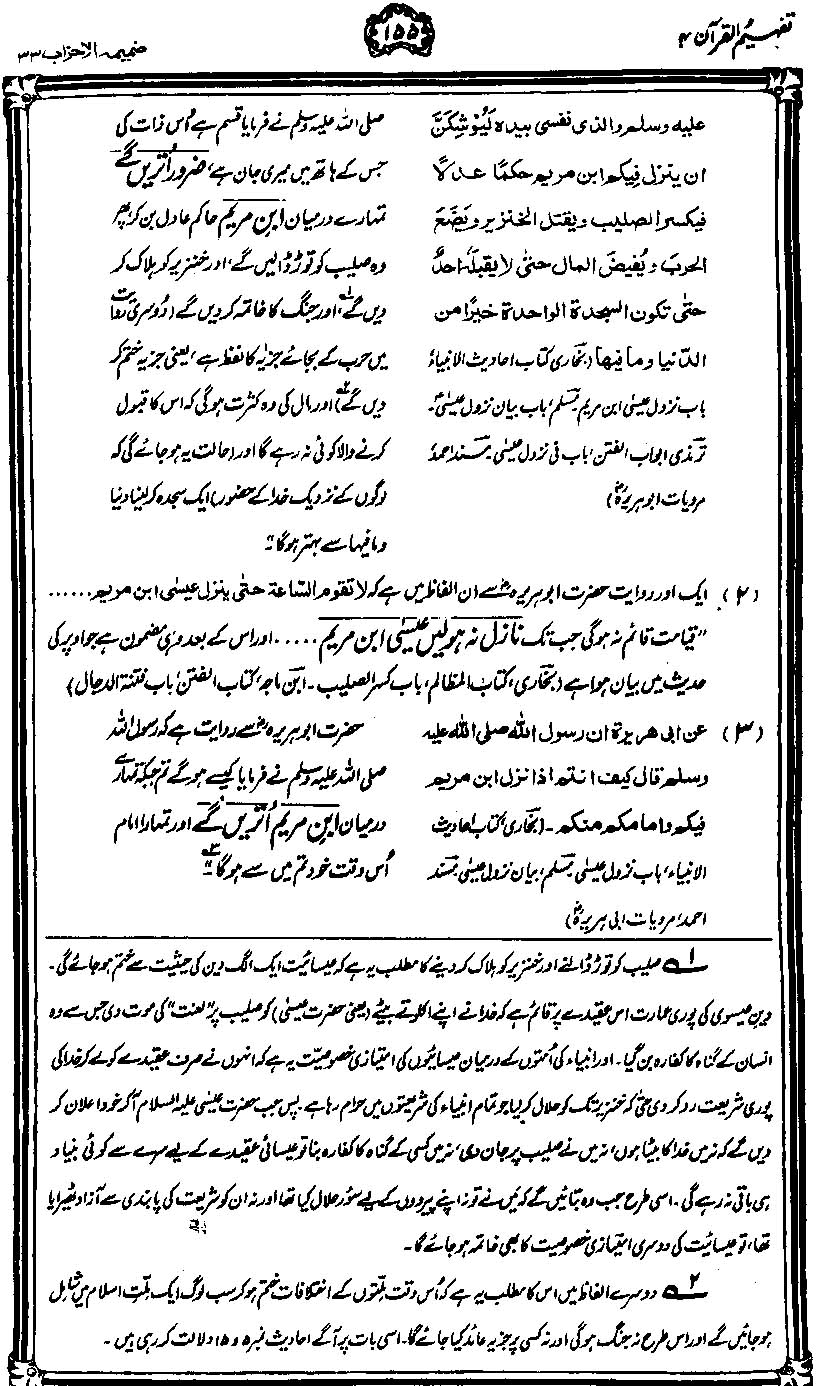 تفہیم القرآن ۴
۱۵۵
ضمیمہ الاحزاب ۳۳
علیہ وسلم والذی نفسی بیدہ لَیُوْشِکَنَّ
ان ینزل فیکم ابن مریم حکمًا عدلًا
فیکسر الصلیب ویقتل الخنزیر ویَضَعَ
الحربَ ویُفیضَ المال حتّٰی لا یقبلَہٗ احدٌ
حتّٰی تکون السجدۃ الواحدۃ خیرًا من
الدنیا وما فیھا (بخاری کتاب احادیث الانبیاء
باب نزول عیسیٰ ابن مریم۔ مسلم، باب بیان نزول عیسیٰؑ۔
ترمذی ابواب الفتن، باب فی نزول عیسیٰ۔ مسند احمد
مرویات ابوہریرہؓ)
صلی اللہ علیہ وسلم نے فرمایا قسم ہے اُس ذات کی
جس کے ہاتھ میں میری جان ہے، ضرور اُتریں گے
تمہارے درمیان ابن مریم حاکم عادل بن کر، پھر
وہ صلیب کو توڑ ڈالیں گے، اور خنزیر کو ہلاک کر
دیں گے۱، اور جنگ کا خاتمہ کر دیں گے (دوسری روایت
میں حرب کے بجائے جزیہ کا لفظ ہے، یعنی جزیہ ختم کر
دیں گے۲) اور مال کی وہ کثرت ہوگی کہ اس کا قبول
کرنے والا کوئی نہ رہے گا اور (حالت یہ ہو جائے گی کہ
لوگوں کے نزدیک خدا کے حضور) ایک سجدہ کر لینا دنیا
و ما فیہا سے بہتر ہوگا"
(۲) ایک اور روایت حضرت ابوہریرہؓ سے ان الفاظ میں ہے کہ لا تقوم الساعۃ حتّٰی ینزل عیسٰی ابن مریم ......
"قیامت قائم نہ ہوگی جب تک نازل نہ ہو لیں عیسیٰ ابن مریم ..... اور اس کے بعد وہی مضمون ہے جو اوپر کی
حدیث میں بیان ہوا ہے (بخاری، کتاب المظالم، باب کسر الصلیب۔ ابن ماجہ، کتاب الفتن، باب فتنۃ الدجال)
(۳) عن ابی ھریرۃ ان رسول اللّٰہ صلی اللّٰہ علیہ
وسلم قال کیف انتم اذا نزل ابن مریم
فیکم وامامکم منکم۔ (بخاری، کتاب احادیث
الانبیاء، باب نزول عیسیٰ۔ مسلم، بیان نزول عیسیٰ۔ مسند
احمد، مرویات ابی ہریرہؓ)
حضرت ابوہریرہؓ سے روایت ہے کہ رسول اللہ
صلی اللہ علیہ وسلم نے فرمایا کیسے ہوگے تم جبکہ تمہارے
درمیان ابن مریم اُتریں گے اور تمہارا امام
اُس وقت خود تم میں سے ہوگا۳"
۱ صلیب کو توڑ ڈالنے اور خنزیر کو ہلاک کر دینے کا مطلب یہ ہے کہ عیسائیت ایک الگ دین کی حیثیت سے ختم ہو جائے گی۔
دین عیسوی کی پوری عمارت اس عقیدے پر قائم ہے کہ خدا نے اپنے اکلوتے بیٹے (یعنی حضرت عیسیٰؑ) کو صلیب پر "لعنت" کی موت دی جس سے وہ
انسان کے گناہ کا کفارہ بن گیا۔ اور انبیاء کی اُمتوں کے درمیان عیسائیوں کی امتیازی خصوصیت یہ ہے کہ انہوں نے صرف عقیدے کو لے کر خدا کی
پوری شریعت رد کر دی حتٰی کہ خنزیر تک کو حلال کر لیا جو تمام انبیاء کی شریعتوں میں حرام رہا ہے۔ پس جب حضرت عیسیٰ علیہ السلام آ کر خود اعلان کر
دیں گے کہ نہ میں خدا کا بیٹا ہوں، نہ میں نے صلیب پر جان دی، نہ میں کسی کے گناہ کا کفارہ بنا تو عیسائی عقیدے کے لیے سرے سے کوئی بنیاد
ہی باقی نہ رہے گی۔ اسی طرح جب وہ بتائیں گے کہ میں نے تو نہ اپنے پیرووں کے لیے سؤر حلال کیا تھا اور نہ ان کو شریعت کی پابندی سے آزاد ٹھیرایا
تھا، تو عیسائیت کی دوسری امتیازی خصوصیت کا بھی خاتمہ ہو جائے گا۔
۲ دوسرے الفاظ میں اس کا مطلب یہ ہے کہ اُس وقت ملتوں کے اختلافات ختم ہو کر سب لوگ ایک ملتِ اسلام میں شامل
ہو جائیں گے اور اس طرح نہ جنگ ہوگی اور نہ کسی پر جزیہ عائد کیا جائے گا۔ اسی بات پر آگے احادیث نمبر ۵ و ۱۵ دلالت کر رہی ہیں۔